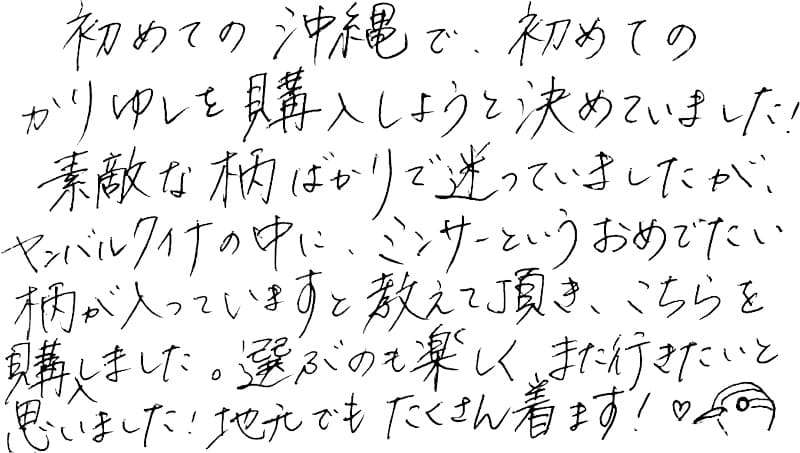 初めての沖縄で、初めての
かりゆしを購入しようと決めていました!
素敵な柄ばかりで迷っていましたが、
ヤンバルクイナの中に、ミンサーというおめでたい
柄が入っていますと教えて頂き、こちらを
購入しました。選ぶのも楽しく また行きたいと
思いました!地元でもたくさん着ます!♡